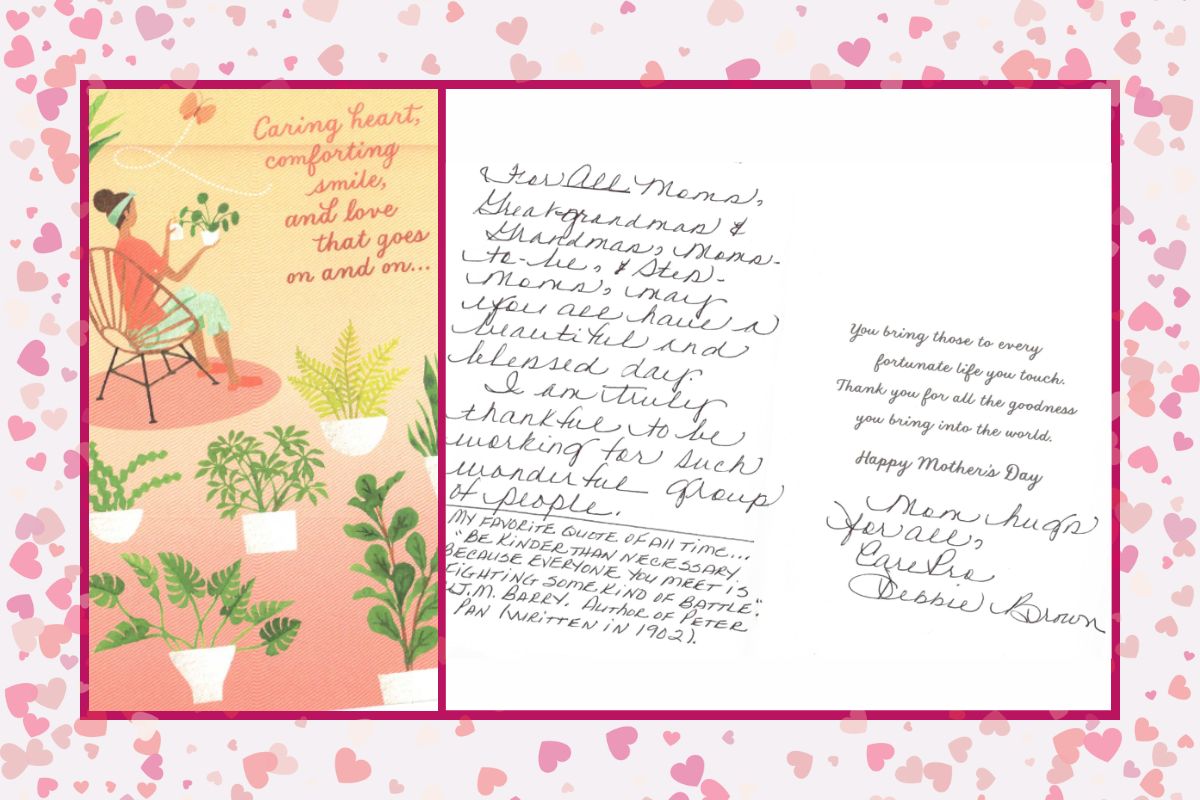 Caring heart,
comforting
smile,
and love
that goes
on and on...
For All Moms,
Great-grandmas &
Grandmas, Moms-
to-be, & Step-
Moms, may
you all have a
beautiful and
blessed day.
I am truly
thankful to be
working for such
wonderful group
of people.
MY FAVORITE QUOTE OF ALL TIME...
"BE KINDER THAN NECESSARY.
BECAUSE EVERYONE YOU MEET IS
FIGHTING SOME KIND OF BATTLE".
J.M. BARRY. AUTHOR OF PETER
PAN (WRITTEN IN 1902).
You bring those to every
fortunate life you touch.
Thank you for all the goodness
you bring into the world.
Happy Mother's Day
Mom hugs
for all,
CarePro
Debbie Brown